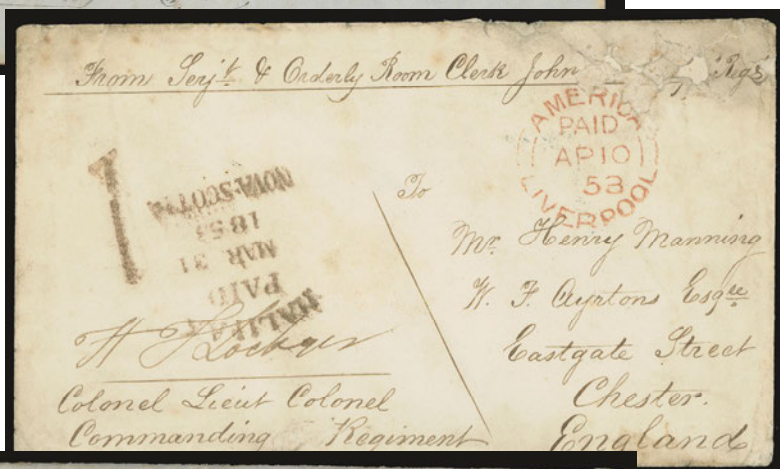 From Serjt & Orderly Room Clerk John Regt
AMERICA
PAID
AP 10
53
LIVERPOOL
1
HALIFAX
PAID
MAR 31
1853
NOVA-SCOTIA
To
Mr. Henry Manning
W. F. Ayrtons Esqre
Eastgate Street
Chester.
England
Colonel Lieut Colonel
Commanding Regiment